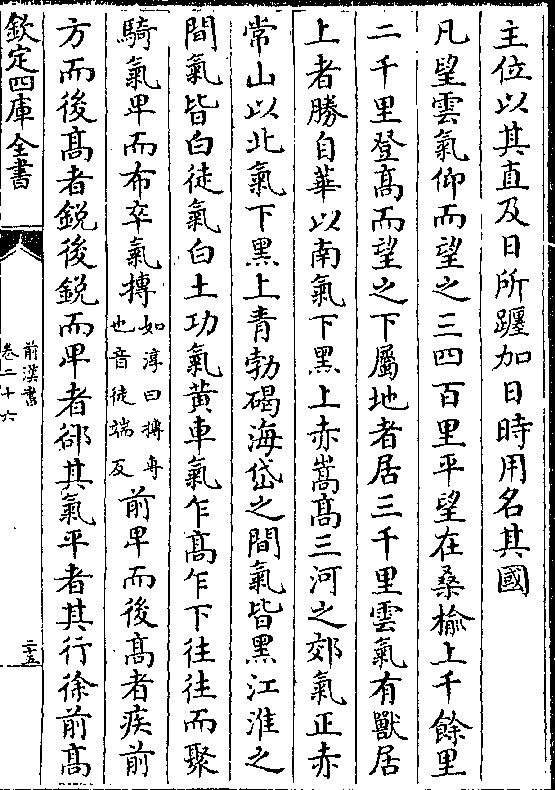 主位以其直及日所躔加日時用名其國
凡望雲氣仰而望之三四百里平望在桑榆上千餘里
二千里登髙而望之下屬地者居三千里雲氣有獸居
上者勝自華以南氣下黑上赤嵩髙三河之郊氣正赤
常山以北氣下黑上青勃碣海岱之間氣皆黑江淮之
間氣皆白徒氣白土功氣黄車氣乍髙乍下往往而聚
騎氣卑而布卒氣摶如淳曰摶專也音徒端反前卑而後髙者疾前
方而後髙者鋭後鋭而卑者郤其氣平者其行徐前髙
欽定四庫全書
前漢書
卷二十六
二十五